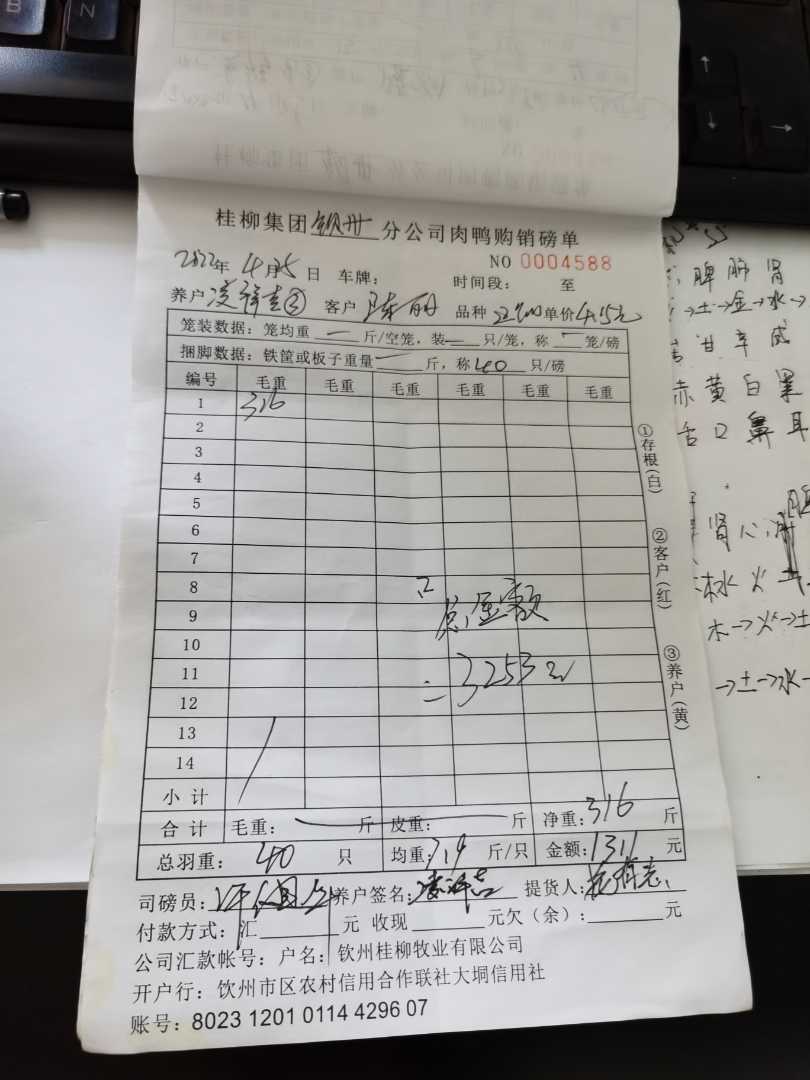 桂柳集团钦州分公司肉鸭购销磅单
NO 0004588
2022年4月5日 车牌: 时间段: 至
养户 客户 陈丽 品种 单价4.15元
笼装数据: 笼均重 一 斤/空笼, 装 一 只/笼, 称 一 笼/磅
捆脚数据: 铁筐或板子重量 一 斤, 称40只/磅
编号 毛重 毛重 毛重 毛重 毛重 毛重
1 316
2
3
4
5
6
7
8
9
10
11
12
13
14
总金额
=3253元
小计
合计 毛重: 一 斤 皮重: 斤 净重:316斤
总羽重: 40 只 均重:7.9斤/只 金额:1311元
司磅员: 养户签名: 提货人:
付款方式: 汇 元 收现 元欠(余): 元
公司汇款帐号: 户名: 钦州桂柳牧业有限公司
开户行: 钦州市区农村信用合作联社大垌信用社
账号: 8023 1201 0114 4296 07
①存根(白)
②客户(红)
③养户(黄)
脾肺肾
→土→金→水→
甘辛咸
赤黄白黑
舌口鼻耳
肾心
水火
木→火→土
→土→水
B
N